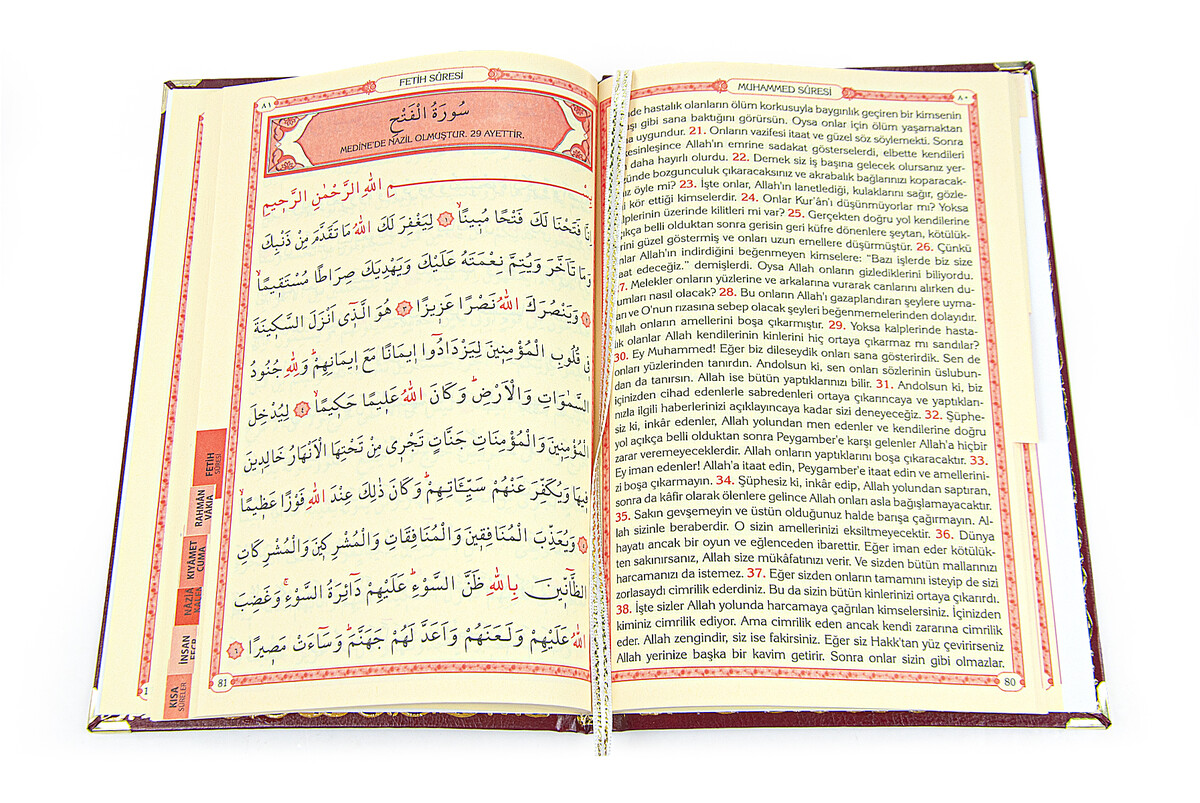 FETİH SÛRESİ
٨١
سُورَةُ الْفَتْحِ
MEDİNE'DE NAZİL OLMUŞTUR. 29 AYETTİR.
اللّٰهِ الرَّحْمٰنِ الرَّح۪يمِ
فَتَحْنَا لَكَ فَتْحًا مُب۪ينًاۙ ﴿١﴾ لِيَغْفِرَ لَكَ اللّٰهُ مَا تَقَدَّمَ مِنْ ذَنْبِكَ
وَمَا تَاَخَّرَ وَيُتِمَّ نِعْمَتَهُ عَلَيْكَ وَيَهْدِيَكَ صِرَاطًا مُسْتَق۪يمًاۙ
وَيَنْصُرَكَ اللّٰهُ نَصْرًا عَز۪يزًا ﴿٣﴾ هُوَ الَّذ۪ٓي اَنْزَلَ السَّك۪ينَةَ
ف۪ي قُلُوبِ الْمُؤْمِن۪ينَ لِيَزْدَادُٓوا ا۪يمَانًا مَعَ ا۪يمَانِهِمْۜ وَلِلّٰهِ جُنُودُ
السَّمٰوَاتِ وَالْاَرْضِۜ وَكَانَ اللّٰهُ عَل۪يمًا حَك۪يمًاۙ ﴿٤﴾ لِيُدْخِلَ
الْمُؤْمِن۪ينَ وَالْمُؤْمِنَاتِ جَنَّاتٍ تَجْر۪ي مِنْ تَحْتِهَا الْاَنْهَارُ خَالِد۪ينَ
ف۪يهَا وَيُكَفِّرَ عَنْهُمْ سَيِّـَٔاتِهِمْۜ وَكَانَ ذٰلِكَ عِنْدَ اللّٰهِ فَوْزًا عَظ۪يمًاۙ
وَيُعَذِّبَ الْمُنَافِق۪ينَ وَالْمُنَافِقَاتِ وَالْمُشْرِك۪ينَ وَالْمُشْرِكَاتِ
الظَّٓانّ۪ينَ بِاللّٰهِ ظَنَّ السَّوْءِۜ عَلَيْهِمْ دَٓائِرَةُ السَّوْءِۚ وَغَضِبَ
اللّٰهُ عَلَيْهِمْ وَلَعَنَهُمْ وَاَعَدَّ لَهُمْ جَهَنَّمَۜ وَسَٓاءَتْ مَص۪يرًا ﴿٦﴾
81
FETİH
SÛRESİ
RAHMÂN
VAKIA
KIYÂMET
CUMA
İNSAN
KISA
SÛRELER
MUHAMMED SÛRESİ
٨٠
hastalık olanların ölüm korkusuyla baygınlık geçiren bir kimsenin
gibi sana baktığını görürsün. Oysa onlar için ölüm yaşamaktan
uygundur. 21. Onların vazifesi itaat ve güzel söz söylemekti. Sonra
kesinleşince Allah'ın emrine sadakat gösterselerdi, elbette kendileri
daha hayırlı olurdu. 22. Demek siz iş başına gelecek olursanız yer-
yüzünde bozgunculuk çıkaracaksınız ve akrabalık bağlarınızı koparacak-
öyle mi? 23. İşte onlar, Allah'ın lanetlediği, kulaklarını sağır, gözle-
kör ettiği kimselerdir. 24. Onlar Kur'ân'ı düşünmüyorlar mı? Yoksa
kalplerinin üzerinde kilitleri mi var? 25. Gerçekten doğru yol kendilerine
açıkça belli olduktan sonra gerisin geri küfre dönenlere şeytan, kötülük-
lerini güzel göstermiş ve onları uzun emellere düşürmüştür. 26. Çünkü
onlar Allah'ın indirdiğini beğenmeyen kimselere: "Bazı işlerde biz size
itaat edeceğiz." demişlerdi. Oysa Allah onların gizlediklerini biliyordu.
27. Melekler onların yüzlerine ve arkalarına vurarak canlarını alırken du-
rumları nasıl olacak? 28. Bu onların Allah'ı gazaplandıran şeylere uyma-
ları ve O'nun rızasına sebep olacak şeyleri beğenmemelerinden dolayıdır.
Allah onların amellerini boşa çıkarmıştır. 29. Yoksa kalplerinde hasta-
lık olanlar Allah kendilerinin kinlerini hiç ortaya çıkarmaz mı sandılar?
30. Ey Muhammed! Eğer biz dileseydik onları sana gösterirdik. Sen de
onları yüzlerinden tanırdın. Andolsun ki, sen onları sözlerinin üslubun-
dan da tanırsın. Allah ise bütün yaptıklarınızı bilir. 31. Andolsun ki, biz
içinizden cihad edenlerle sabredenleri ortaya çıkarıncaya ve yaptıkları-
nızla ilgili haberlerinizi açıklayıncaya kadar sizi deneyeceğiz. 32. Şüphe-
siz ki, inkâr edenler, Allah yolundan men edenler ve kendilerine doğru
yol açıkça belli olduktan sonra Peygamber'e karşı gelenler Allah'a hiçbir
zarar veremeyeceklerdir. Allah onların yaptıklarını boşa çıkaracaktır. 33.
Ey iman edenler! Allah'a itaat edin, Peygamber'e itaat edin ve amellerini-
zi boşa çıkarmayın. 34. Şüphesiz ki, inkâr edip, Allah yolundan saptıran,
sonra da kâfir olarak ölenlere gelince Allah onları asla bağışlamayacaktır.
35. Sakın gevşemeyin ve üstün olduğunuz halde barışa çağırmayın. Al-
lah sizinle beraberdir. O sizin amellerinizi eksiltmeyecektir. 36. Dünya
hayatı ancak bir oyun ve eğlenceden ibarettir. Eğer iman eder kötülük-
ten sakınırsanız, Allah size mükâfatınızı verir. Ve sizden bütün mallarınızı
harcamanızı da istemez. 37. Eğer sizden onların tamamını isteyip de sizi
zorlasaydı cimrilik ederdiniz. Bu da sizin bütün kinlerinizi ortaya çıkarırdı.
38. İşte sizler Allah yolunda harcamaya çağrılan kimselersiniz. İçinizden
kiminiz cimrilik ediyor. Ama cimrilik eden ancak kendi zararına cimrilik
eder. Allah zengindir, siz ise fakirsiniz. Eğer siz Hakk'tan yüz çevirirseniz
Allah yerinize başka bir kavim getirir. Sonra onlar sizin gibi olmazlar.
80